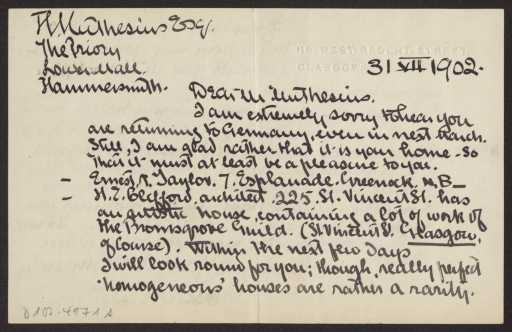 H Muthesius Esq.
The Priory
Lower Mall.
Hammersmith.
31 VII 1902.
Dear Mr Muthesius.
I am extremely sorry to hear you
are returning to Germany, even in next March.
Still, I am glad rather that it is your home - so
that it must at least be a pleasure to you.
– Ernest A. Taylor. 7, Esplanade. Greenock. N.B –
– H. E. Clifford. architect. 225. St. Vincent St. has
an artistic house, containing a lot of work of
the Bromsgrove Guild. (St Vincent St. Glasgow,
of course). Within the next few days
I will look round for you; though, really perfect
"homogeneous" houses are rather a rarity.
D 102-4971 a